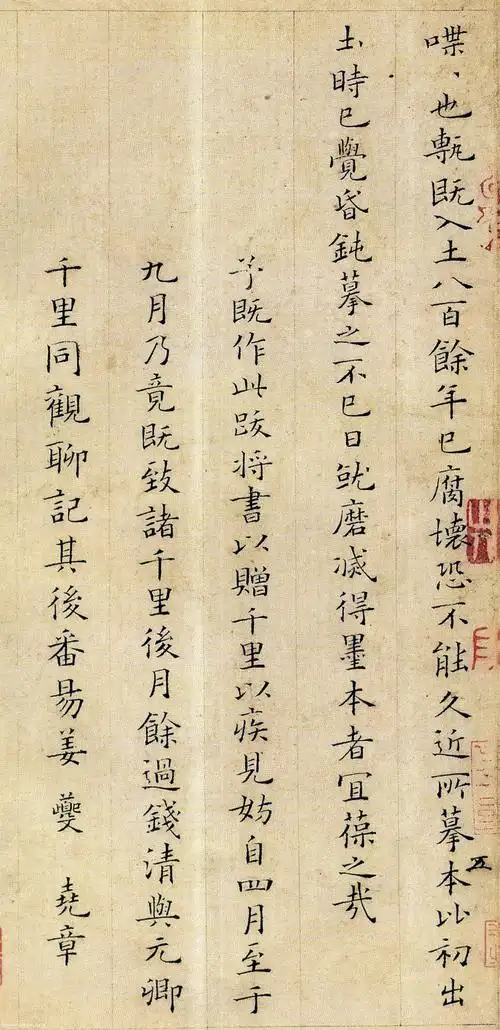 喋、也甎既入土八百餘年已腐壞恐不能久近所摹本比初出
土時已覺昏鈍摹之不已日就磨滅得墨本者宜葆之哉
予既作此跋将書以贈千里以疾見妨自四月至于
九月乃竟既致諸千里後月餘過錢清與元卿
千里同觀聊記其後番昜姜夔 堯章
五